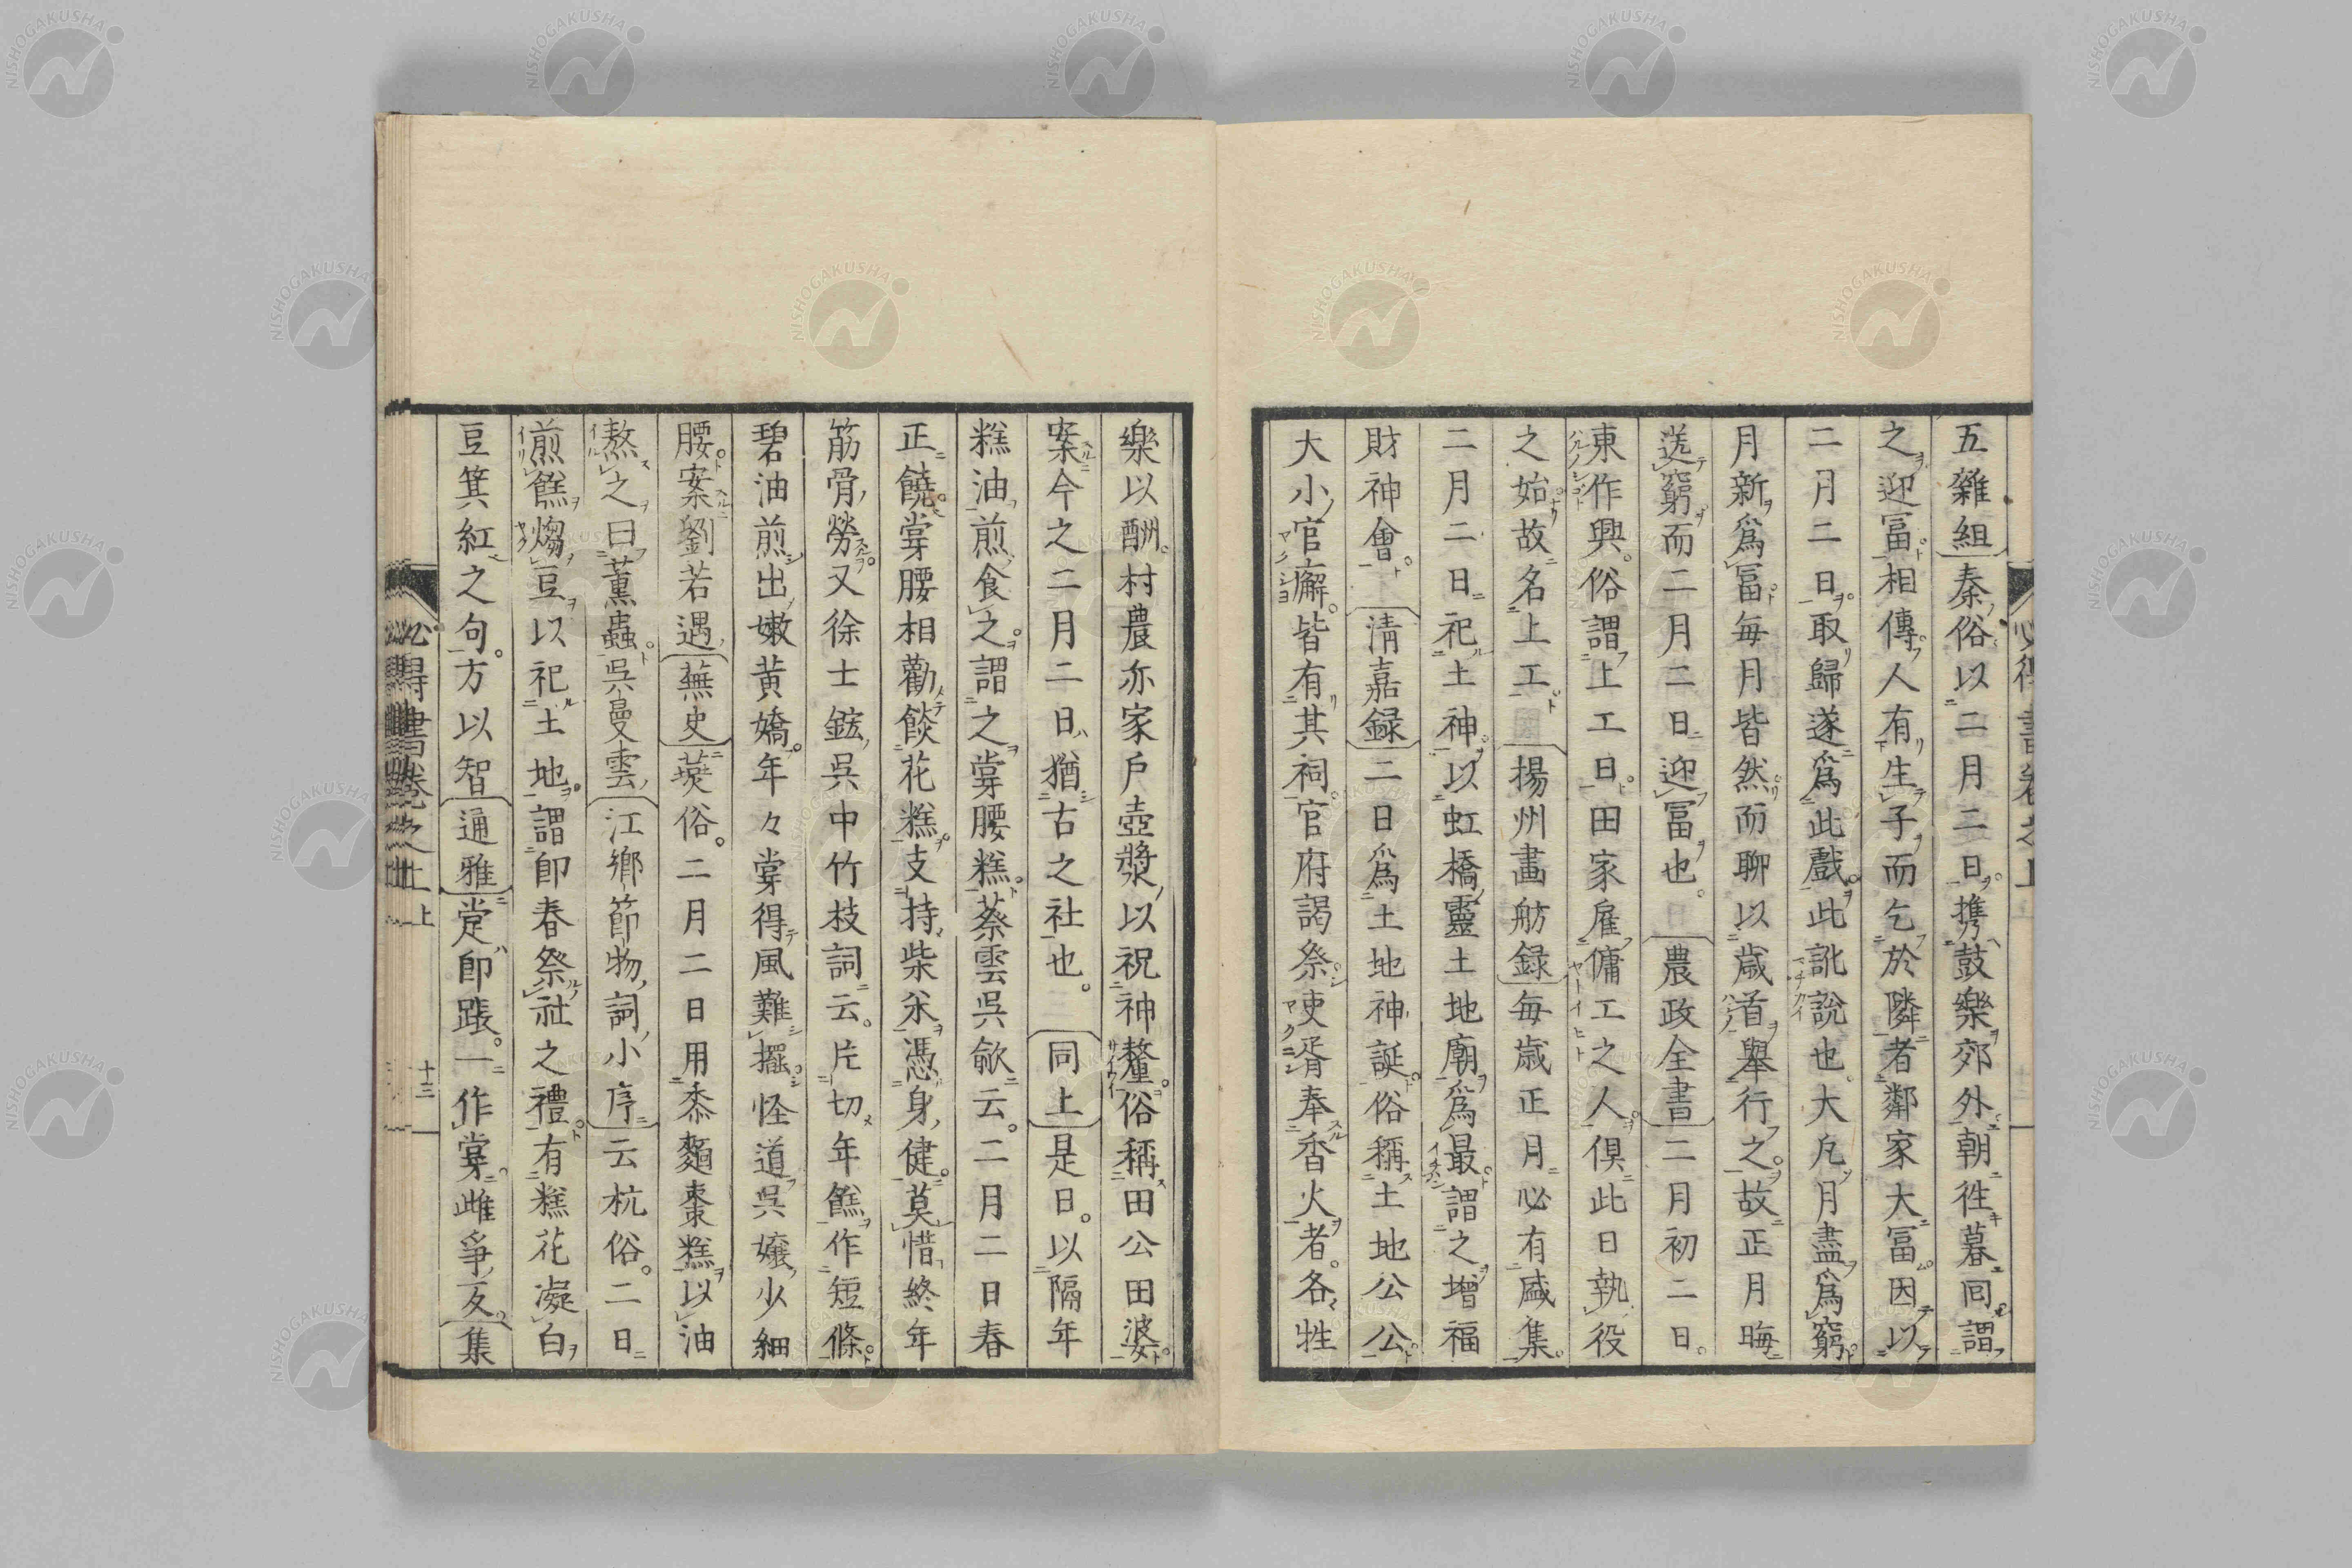 五雜組秦俗以二月二日携鼓樂郊外朝徃暮囘謂
之迎冨相傳人有生子而乞於隣者鄰家大冨因以
二月二日取歸遂爲此戲此訛說也大凢月盡爲窮
月新爲冨每月皆然而聊以歳首舉行之故正月晦
送窮而二月二日迎冨也農政全書二月初二日
東作興俗謂上工日田家雇傭工之人俱此日執役
之始故名上工揚州畫舫録毎歳正月必有盛集
二月二日祀土神以虹橋靈土地廟爲最謂之增福
財神會清嘉録二日爲土地神誕俗稱土地公公
大小官廨皆有其祠官府謁祭吏胥奉香火者各牲
樂以酬村農亦家戶壺漿以祝神釐俗稱田公田婆
案今之二月二日猶古之社也同上是日以隔年
糕油煎食之謂之掌腰糕蔡雲吳歈云二月二日春
正饒掌腰相勸餤花糕支持柴米憑身健莫惜終年
筋骨勞又徐士鋐吳中竹枝詞云片切年餻作短條
碧油煎出嫩黄嬌年々掌得風難擺怪道吳孃少細
腰案劉若遇蕪史燕俗二月二日用黍麵棗糕以油
熬之曰薫蟲吳曼雲江鄉節物詞小序云杭俗二日
煎餻煼豆以祀土地謂卽春祭社之禮有糕花凝白
豆箕紅之句方以智通雅定卽䠆一作掌雌爭互集
必得書巻之上 上 十三
NISHOGAKUSHA